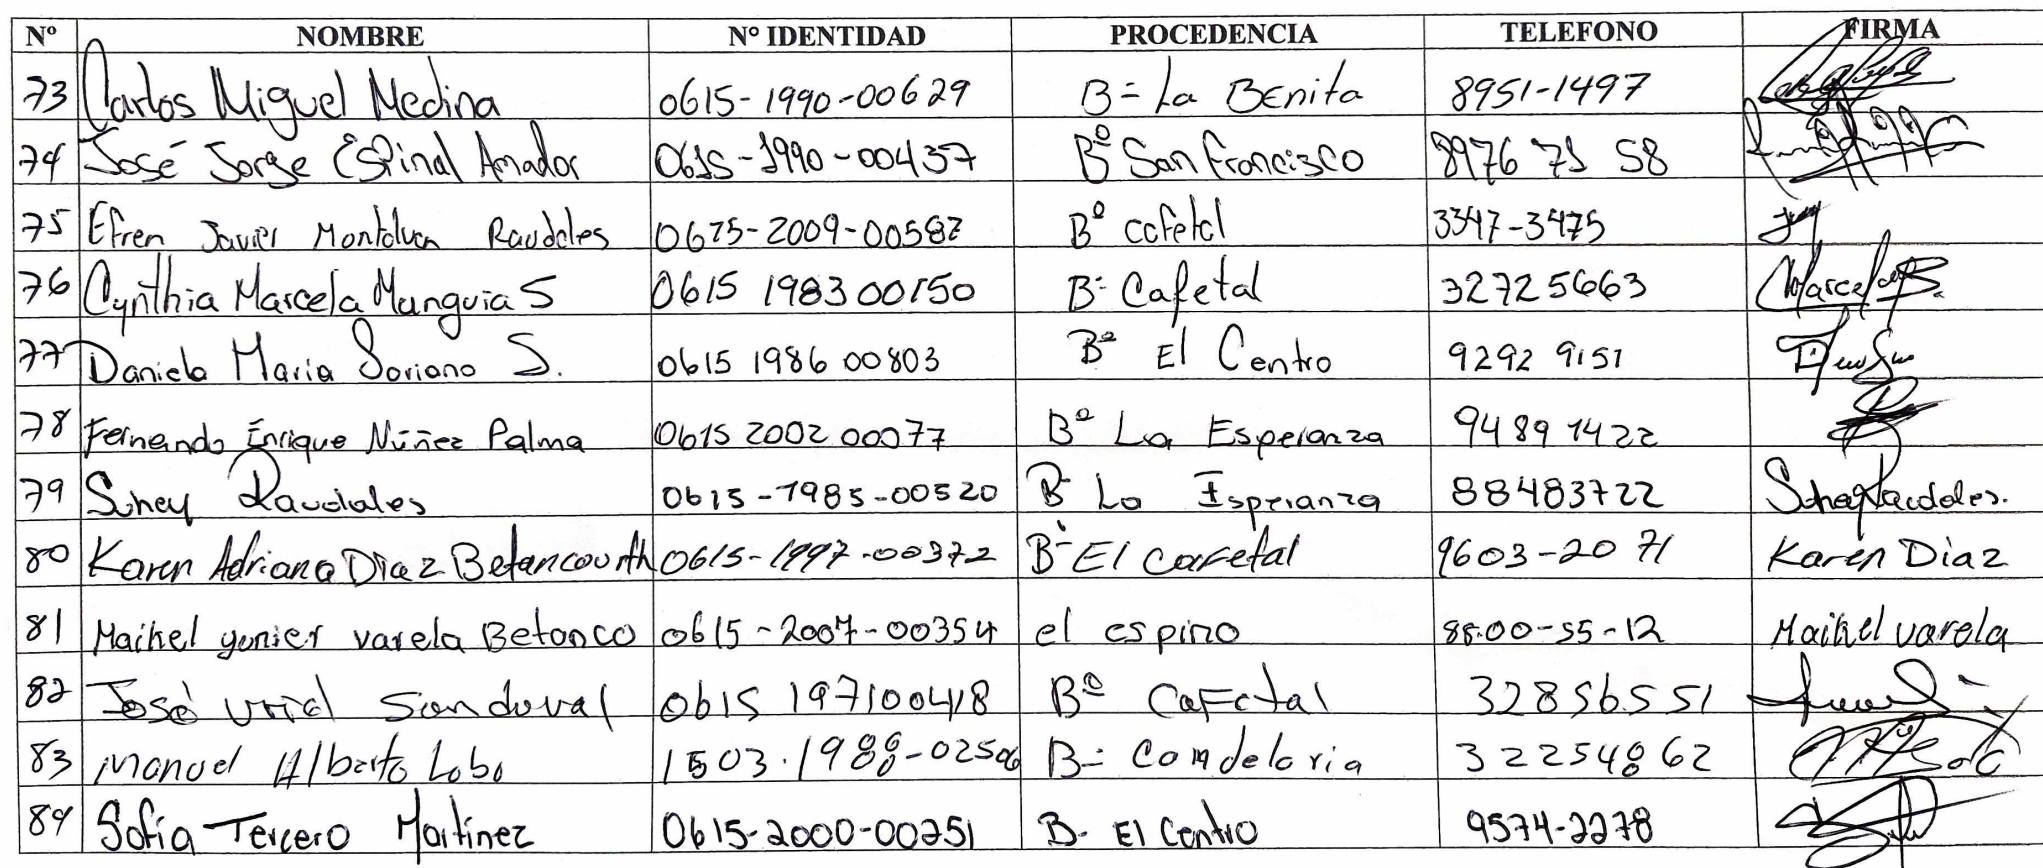 Nº NOMBRE Nº IDENTIDAD PROCEDENCIA TELEFONO FIRMA
73 Carlos Miguel Medina 0615-1990-00629 B= La BEnita 8951-1497
74 José Jorge ESPinal Amador 0615-1990-00437 Bº San francisco 8976 71 58
75 Efren Javier Montalvan Raudales 0615-2009-00587 Bº cafetal 3347-3475
76 Cynthia Marcela Munguia S 0615 1983 00150 B- Cafetal 32725663 Marcela B.
77 Daniela Maria Soriano S. 0615 1986 00803 Bº El Centro 9292 9151
78 Fernando Enrique Núñez Palma 0615 2002 00077 Bº La Esperanza 9489 1422
79 Suhey Raudales 0615-1985-00520 B- La Esperanza 88483722 Suhey Raudales.
80 Karen Adriana Diaz Betancourth 0615-1997-00372 B- El cafetal 9603-20 71 Karen Diaz
81 Maikel yunier varela Betanco 0615-2007-00354 el espino 8800-55-12 Maikel varela
82 José Uriel Sandoval 0615 197100418 Bº Cafetal 32856551
83 Manuel Alberto Lobo 1503.1988-02506 B= Candelaria 32254862
84 Sofia Tercero Martinez 0615-2000-00251 B- El Centro 9574-2278